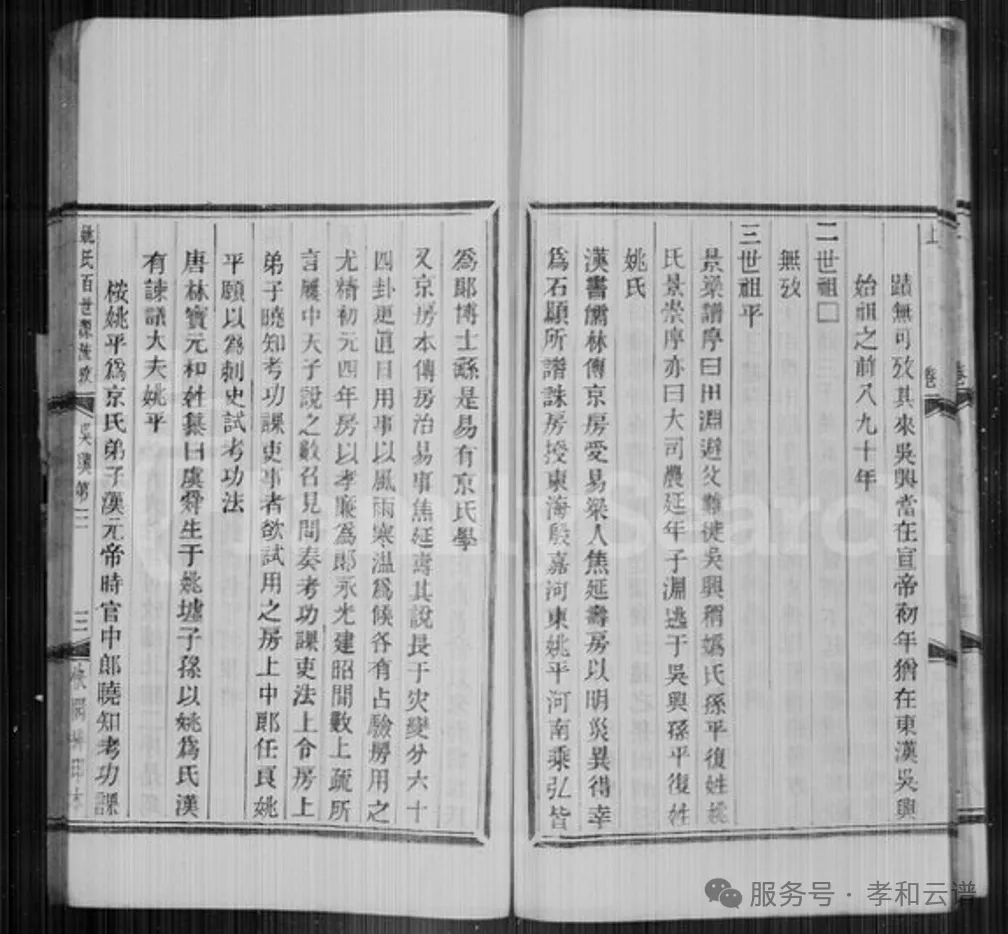 蹟無可攷其來吳興當在宣帝初年猶在東漢吳興
始祖之前八九十年
二世祖□
無攷
三世祖平
景梁譜摩曰田淵避父難徙吳興稱媯氏孫平復姓姚
氏景崇摩亦曰大司農延年子淵逃于吳興孫平復姓
姚氏
漢書儒林傳京房受易梁人焦延壽房以明災異得幸
爲石顯所譖誅房授東海殷嘉河東姚平河南乘弘皆
爲郎博士繇是易有京氏學
又京房本傳房治易事焦延壽其說長于灾變分六十
四卦更直日用事以風雨寒溫爲候各有占驗房用之
尤精初元四年房以孝廉爲郎永光建昭間數上疏所
言屢中天子說之數召見問奏考功課吏法上令房上
弟子曉知考功課吏事者欲試用之房上中郎任良姚
平願以爲刺史試考功法
唐林寶元和姓纂曰虞舜生于姚墟子孫以姚爲氏漢
有諫議大夫姚平
桉姚平爲京氏弟子漢元帝時官中郎曉知考功課
姚氏百世源流攷
吳興第二
三
上
卷
服务号·孝和云谱